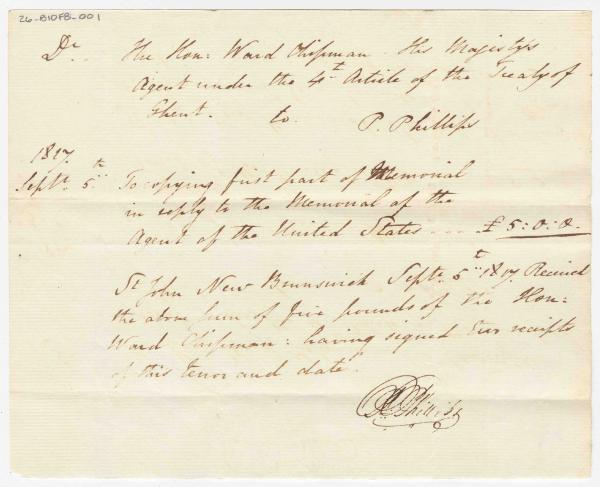 26-B10FB-001
Dr. The Hon: Ward Chipman. His Majestys
Agent under the 4th Article of the Treaty of
Ghent. to. P. Phillips
1817.
Septr. 5th To copying first part of Memorial
in reply to the Memorial of the
Agent of the United States ... £ 5:0:0.
St John New Brunswick Septr. 5th 1817. Received
the above sum of five pounds of the Hon:
Ward Chipman: having signed two receipts
of this tenor and date.
P Phillips